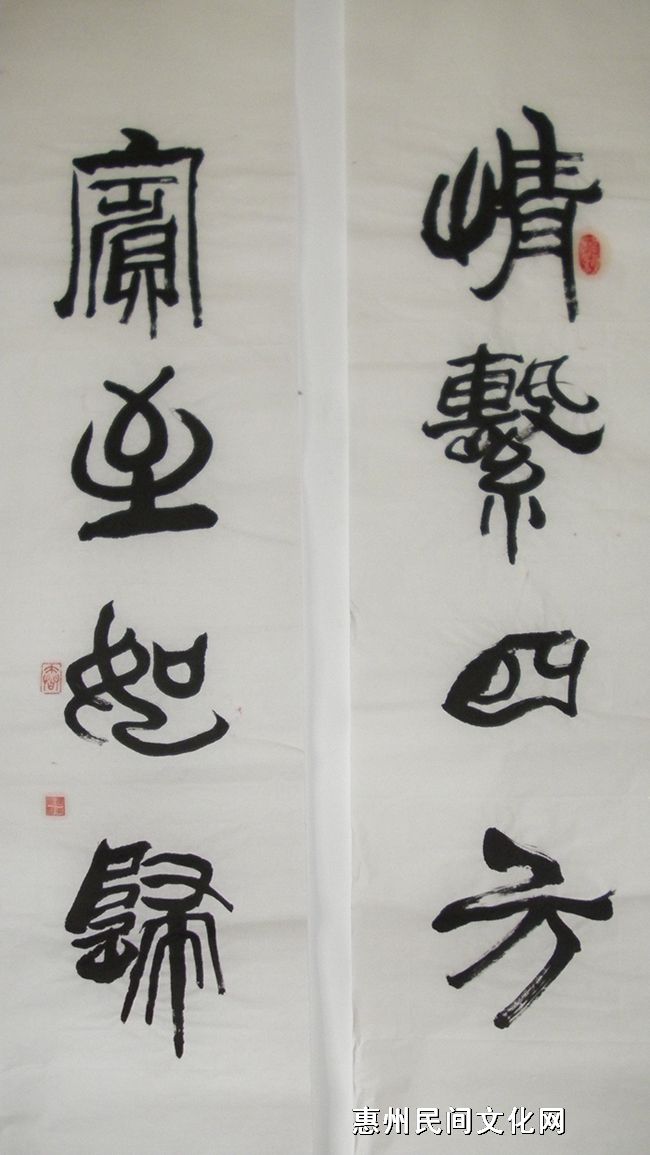 情繫四方
賓至如歸
惠州民间文化网